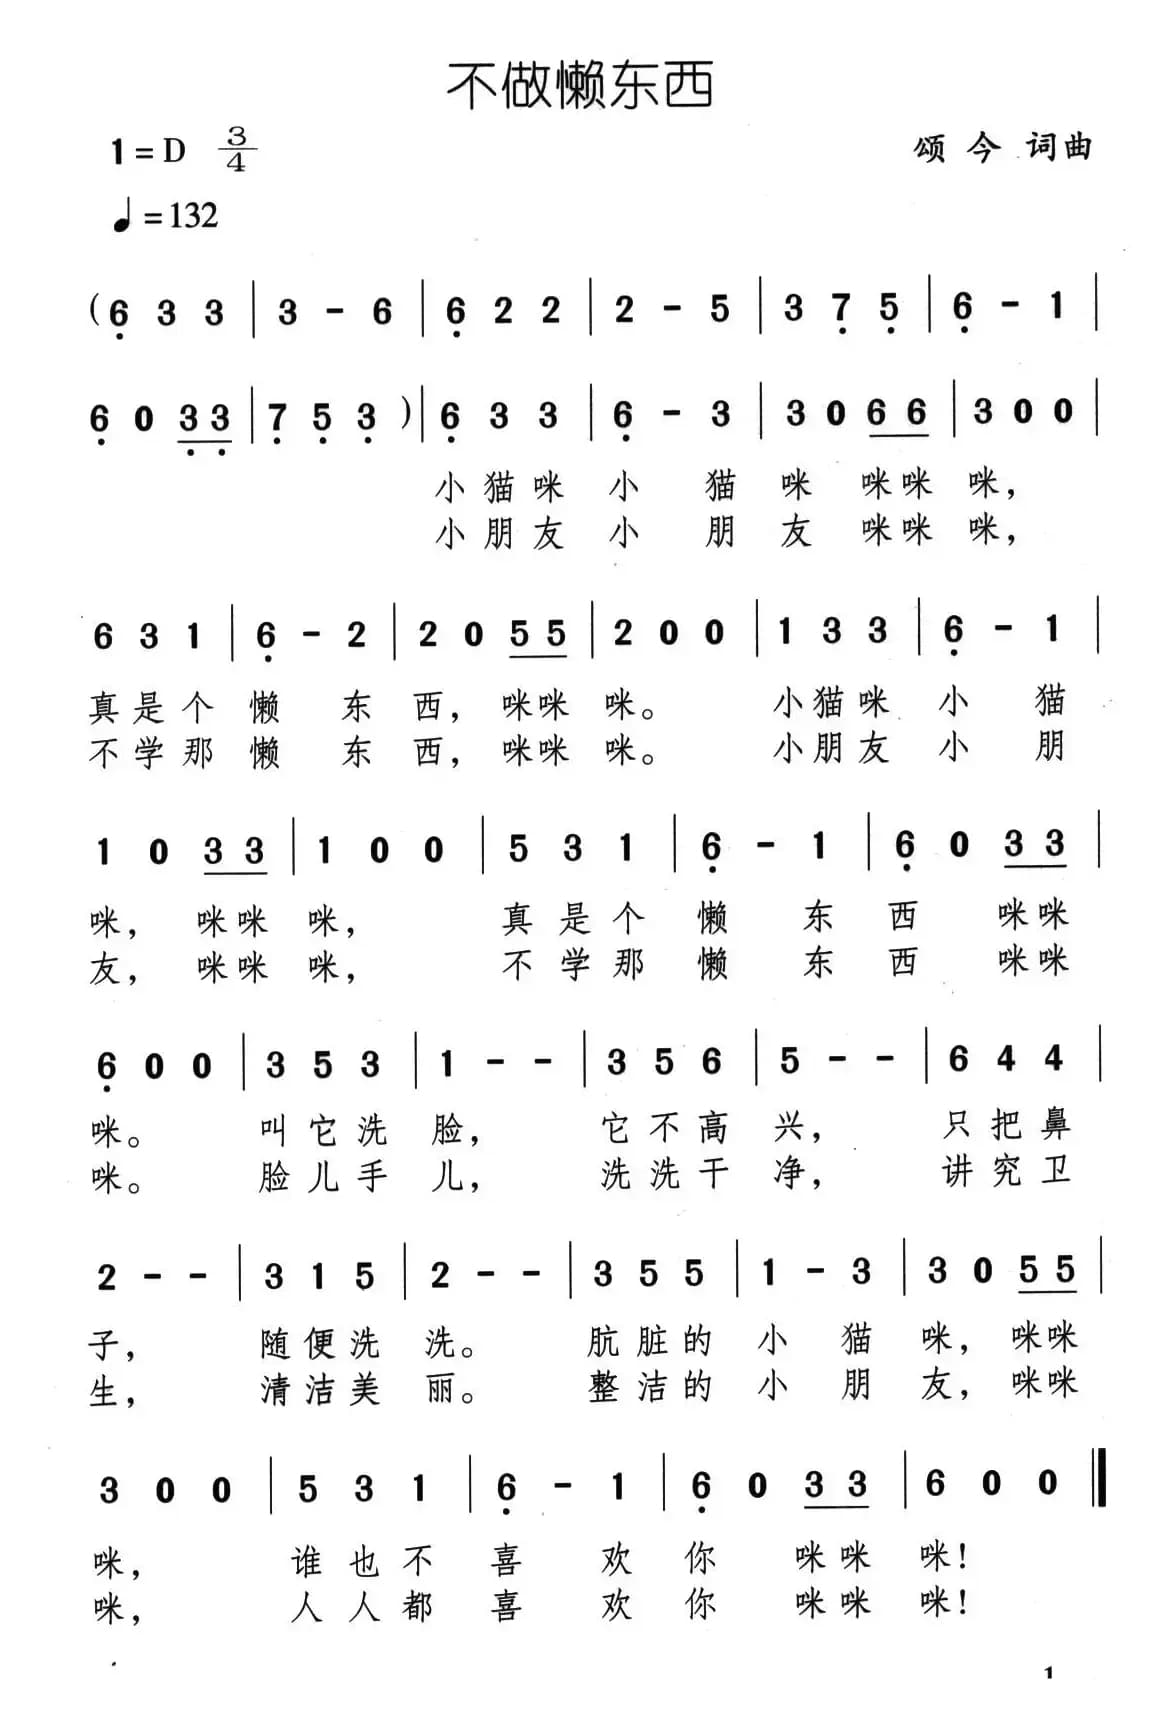 不做懒东西
1=D 3/4 颂今 词曲
♩=132
(6̣ 3 3 | 3 - 6 | 6̣ 2 2 | 2 - 5 | 3 7̣ 5̣ | 6̣ - 1 |
6̣ 0 3̣ 3̣ | 7̣ 5̣ 3̣ ) | 6̣ 3 3 | 6̣ - 3 | 3 0 6 6 | 3 0 0 |
小 猫 咪 小 猫 咪 咪咪 咪,
小 朋 友 小 朋 友 咪咪 咪,
6 3 1 | 6̣ - 2 | 2 0 5 5 | 2 0 0 | 1 3 3 | 6̣ - 1 |
真 是 个 懒 东 西, 咪咪 咪。 小猫咪 小 猫
不 学 那 懒 东 西, 咪咪 咪。 小朋友 小 朋
1 0 3 3 | 1 0 0 | 5 3 1 | 6̣ - 1 | 6̣ 0 3 3 |
咪, 咪咪 咪, 真 是 个 懒 东 西 咪咪
友, 咪咪 咪, 不 学 那 懒 东 西 咪咪
6̣ 0 0 | 3 5 3 | 1 - - | 3 5 6 | 5 - - | 6 4 4 |
咪。 叫它洗 脸, 它不高 兴, 只把鼻
咪。 脸儿手 儿, 洗洗干 净, 讲究卫
2 - - | 3 1 5 | 2 - - | 3 5 5 | 1 - 3 | 3 0 5 5 |
子, 随便洗 洗。 肮脏的 小 猫 咪, 咪咪
生, 清洁美 丽。 整洁的 小 朋 友, 咪咪
3 0 0 | 5 3 1 | 6̣ - 1 | 6̣ 0 3 3 | 6 0 0 ‖
咪, 谁 也 不 喜 欢 你 咪咪 咪!
咪, 人 人 都 喜 欢 你 咪咪 咪!
1